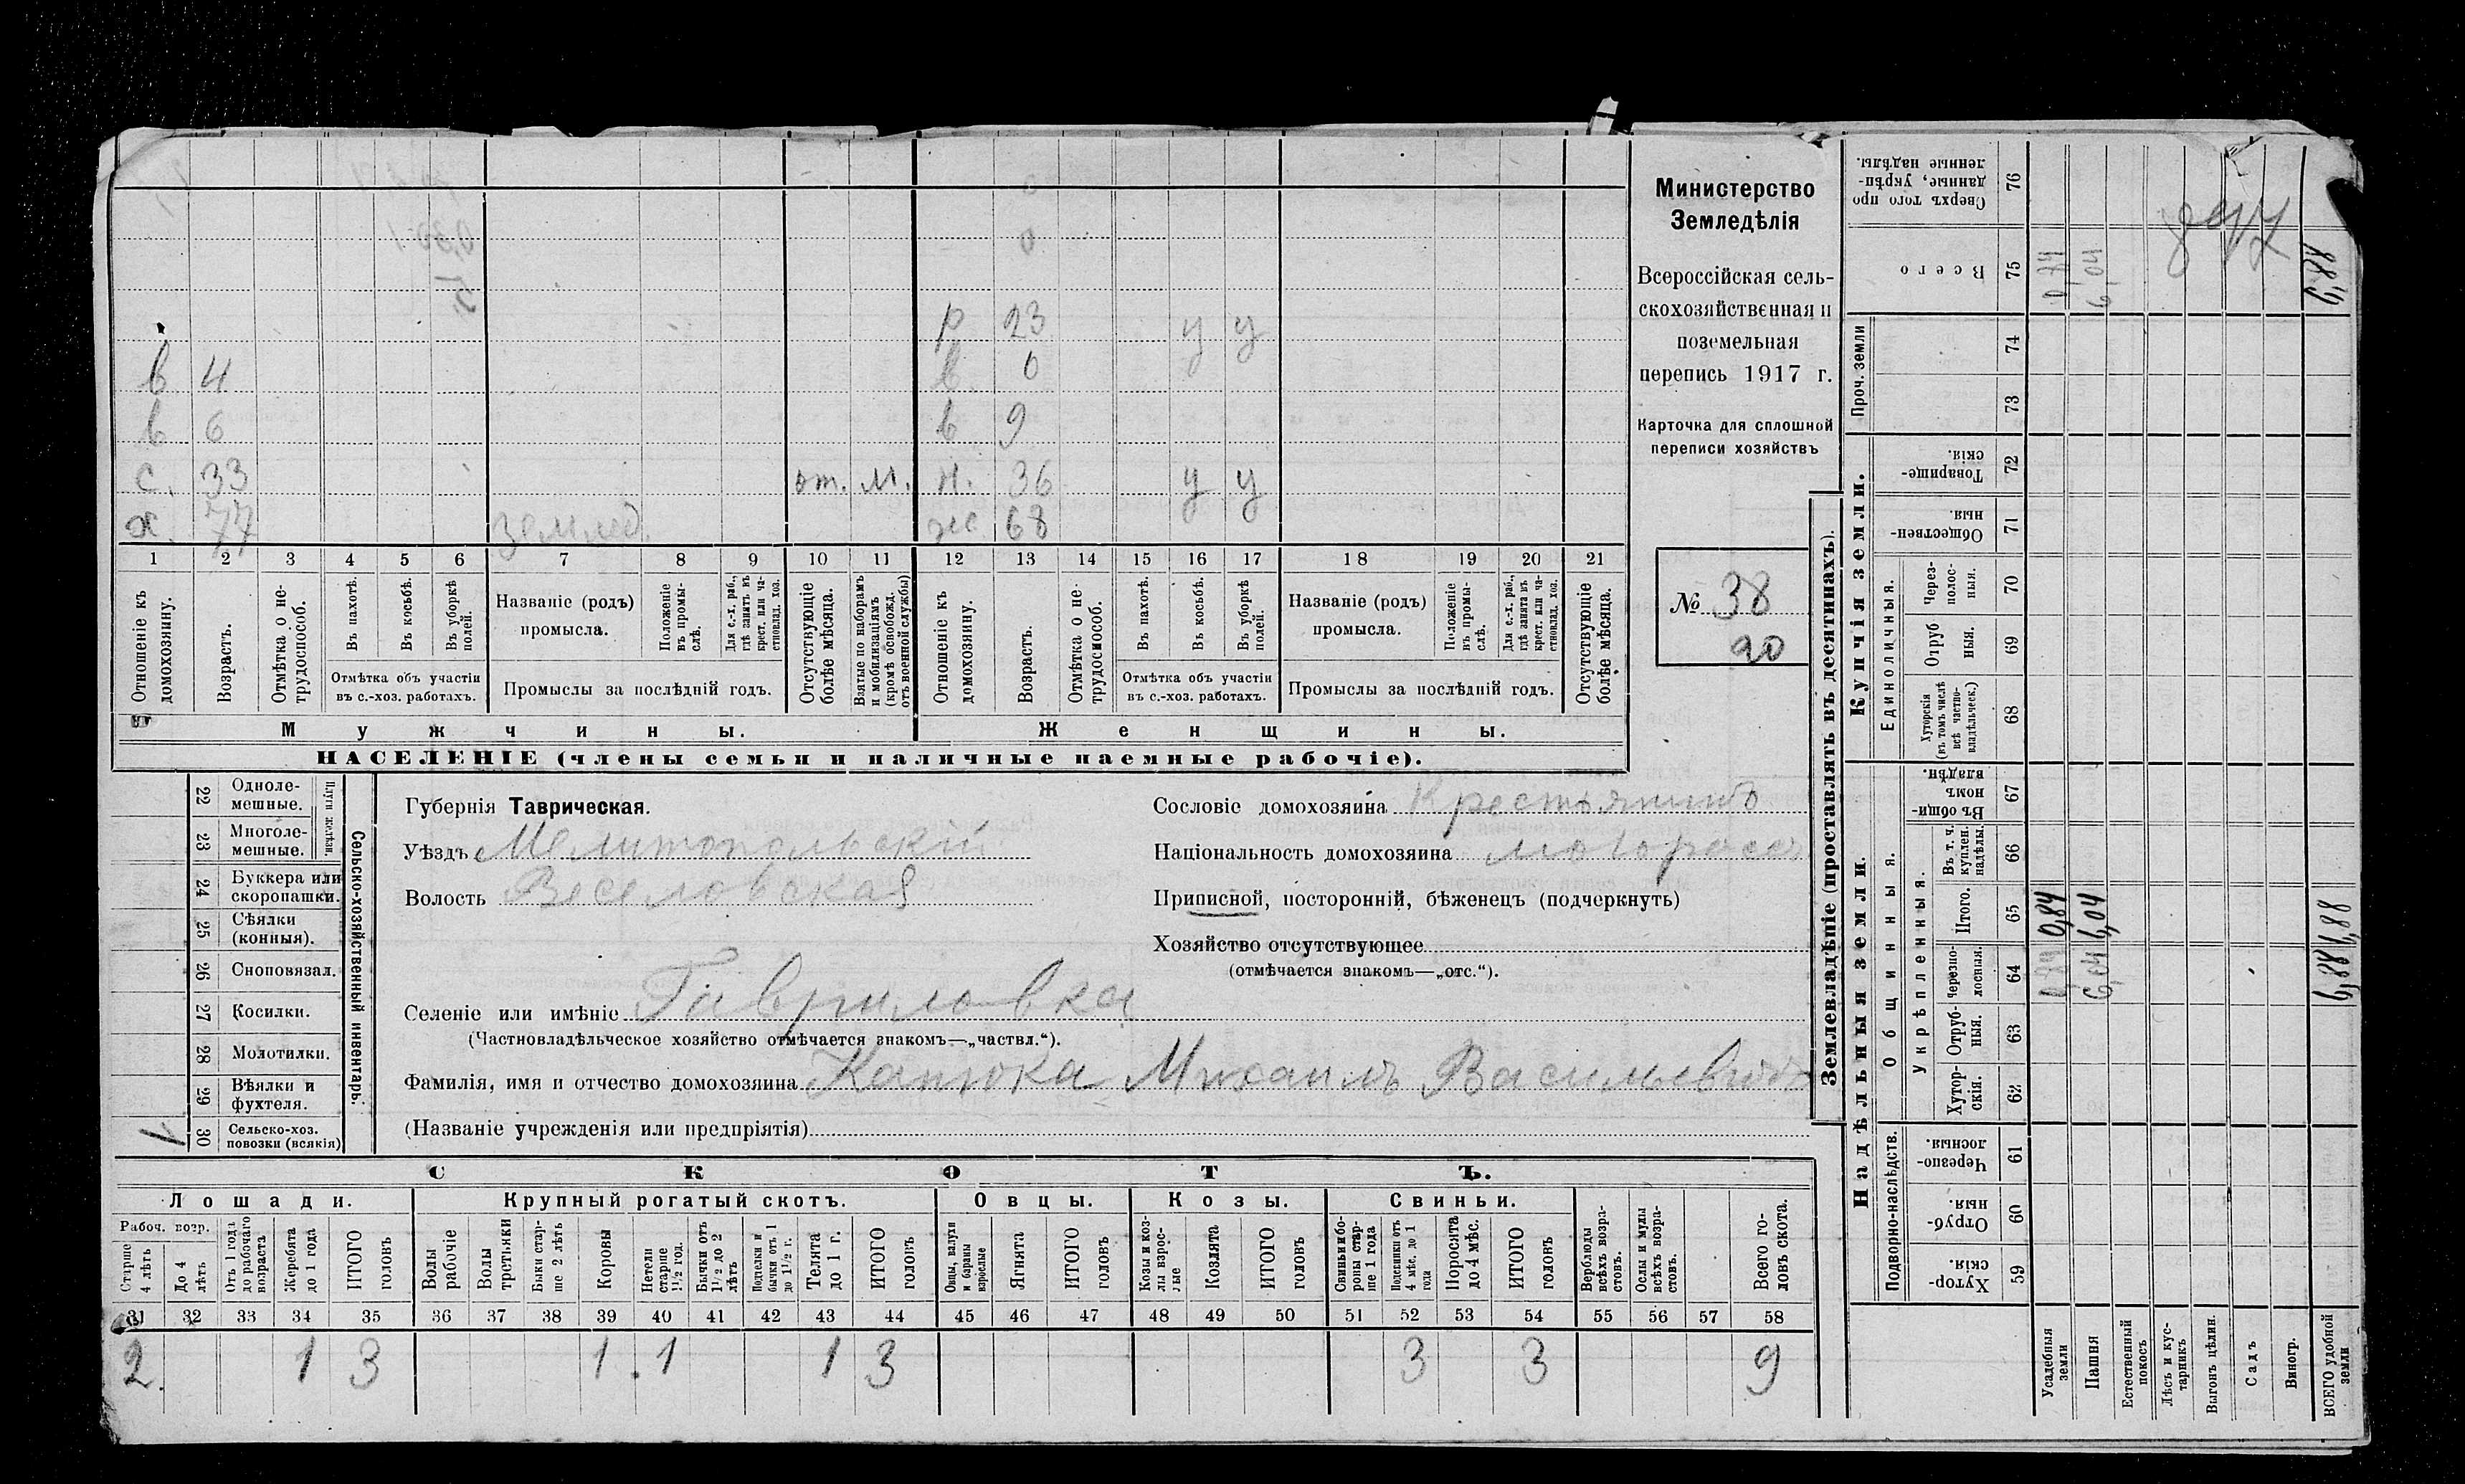 Министерство
Земледѣлія
Всероссійская сель-
скохозяйственная и
поземельная
перепись 1917 г.
Карточка для сплошной
переписи хозяйствъ
№ 38
90
р 23 у у
в 4 в 0
в 6 в 9
с. 33 от. м. н. 36 у у
х. 77 землед. ж. 68
1 2 3 4 5 6 7 8 9 10 11 12 13 14 15 16 17 18 19 20 21
Отношеніе къ домохозяину.
Возрастъ.
Отмѣтка о не-трудоспособ.
Въ пахотѣ.
Въ косьбѣ.
Въ уборкѣ полей.
Отмѣтка объ участіи
въ с.-хоз. работахъ.
Названіе (родъ)
промысла.
Положеніе въ промы-слѣ.
Для с.-х. раб., гдѣ занятъ въ крест. или ча-стновлад. хоз.
Промыслы за послѣдній годъ.
Отсутствующіе болѣе мѣсяца.
Взятые по наборамъ и мобилизаціямъ (кромѣ освобожд. отъ военной службы)
Отношеніе къ домохозяину.
Возрастъ.
Отмѣтка о не-трудоспособ.
Въ пахотѣ.
Въ косьбѣ.
Въ уборкѣ полей.
Отмѣтка объ участіи
въ с.-хоз. работахъ.
Названіе (родъ)
промысла.
Положеніе въ промы-слѣ.
Для с.-х. раб., гдѣ занята въ крест. или ча-стновлад. хоз.
Промыслы за послѣдній годъ.
Отсутствующіе болѣе мѣсяца.
Мужчины. Женщины.
НАСЕЛЕНІЕ (члены семьи и наличные наемные рабочіе).
Сельско-хозяйственный инвентарь.
Плуги желѣзн.
22 Одноле-мешные.
23 Многоле-мешные.
24 Буккера или скоропашки.
25 Сѣялки (конныя).
26 Сноповязал.
27 Косилки.
28 Молотилки.
29 Вѣялки и фухтеля.
30 Сельско-хоз. повозки (всякія) 1
Губернія Таврическая.
Уѣздъ Мелитопольскій
Волость Веселовская
Селеніе или имѣніе Гавриловка
(Частновладѣльческое хозяйство отмѣчается знакомъ—„частвл.“).
Фамилія, имя и отчество домохозяина Капюка Михаилъ Васильевичъ
(Названіе учрежденія или предпріятія)
Сословіе домохозяина Крестьянинъ
Національность домохозяина малоросс
Приписной, посторонній, бѣженецъ (подчеркнуть)
Хозяйство отсутствующее
(отмѣчается знакомъ—„отс.“).
СКОТЪ.
Лошади. Крупный рогатый скотъ. Овцы. Козы. Свиньи.
Рабоч. возр.
Старше 4 лѣтъ
До 4 лѣтъ
Отъ 1 года до рабочаго возраста
Жеребята до 1 года
ИТОГО головъ
Волы рабочіе
Волы третьяки
Быки стар-ше 2 лѣтъ
Коровы
Нетели старше 1½ год.
Бычки отъ 1½ до 2 лѣтъ
Подтелки и бычки отъ 1 до 1½ г.
Телята до 1 г.
ИТОГО головъ
Овцы, валухи и бараны взрослые
Ягнята
ИТОГО головъ
Козы и коз-лы взрос-лые
Козлята
ИТОГО головъ
Свиньи и бо-ровы стар-ше 1 года
Подсвинки отъ 4 мѣс. до 1 года
Поросята до 4 мѣс.
ИТОГО головъ
Верблюды всѣхъ возра-стовъ.
Ослы и мулы всѣхъ возра-стовъ.
Всего го-ловъ скота.
31 32 33 34 35 36 37 38 39 40 41 42 43 44 45 46 47 48 49 50 51 52 53 54 55 56 57 58
2 1 3 1 1 1 3 3 3 9
Землевладѣніе (проставлять въ десятинахъ).
Купчія земли.
Надѣльныя земли.
76 Сверхъ того про-данные, укрѣп-ленные надѣлы.
75 Всего 6,04 6,88
Проч. земли
74
73
72 Товарище-скія.
71 Обществен-ныя.
Единоличныя.
70 Через-полос-ныя.
69 Отруб ныя.
68 Хуторскія (въ томъ числѣ всѣ частно-владѣльческ.)
Общинныя.
67 Въ общи-номъ владѣн.
Укрѣпленныя.
66 Въ т. ч. куплен. надѣлы.
65 Итого. 0,84 6,04 6,88
64 Черезпо-лосныя. 6,04 6,88
63 Отруб-ныя.
62 Хутор-скія.
Подворно-наслѣдств.
61 Черезпо-лосныя.
60 Отруб-ныя.
59 Хутор-скія.
Усадебныя земли
Пашня
Естественный покосъ
Лѣсъ и кус-тарникъ
Выгонъ цѣлин.
Садъ
Виногр.
ВСЕГО удобной земли